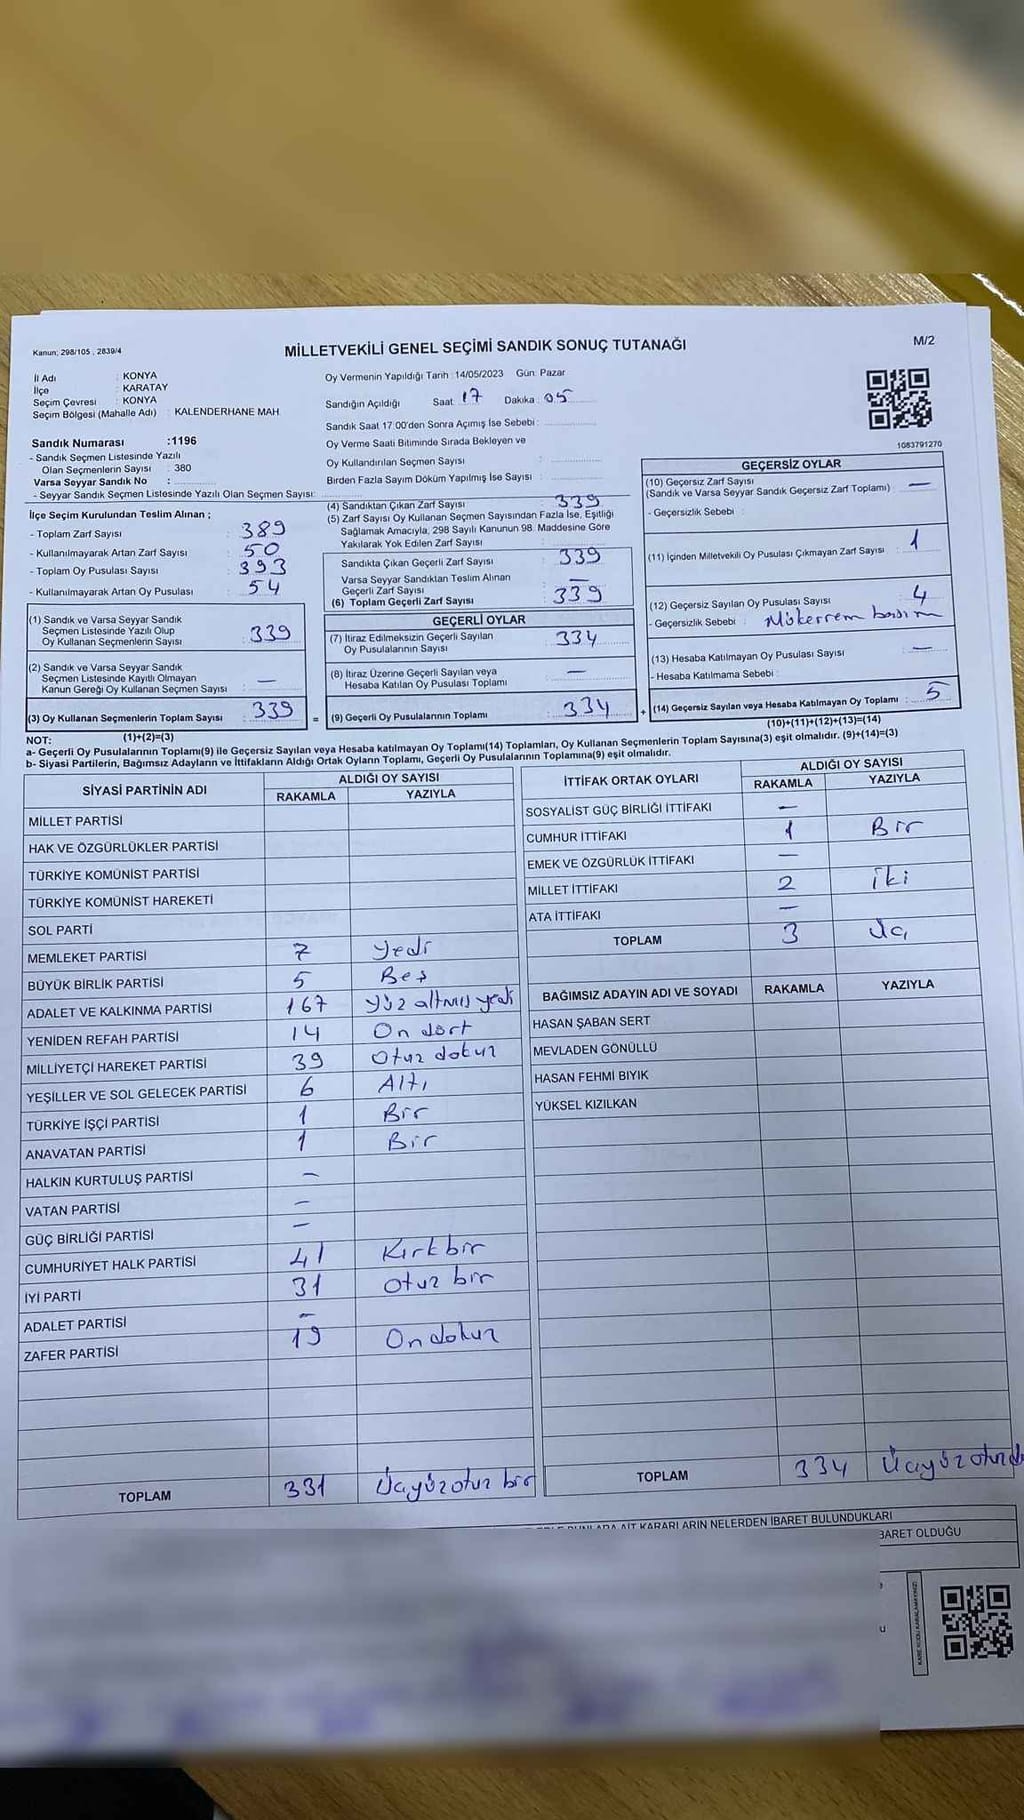 Kanun; 298/105 , 2839/4
MİLLETVEKİLİ GENEL SEÇİMİ SANDIK SONUÇ TUTANAĞI
M/2
İl Adı : KONYA
İlçe : KARATAY
Seçim Çevresi : KONYA
Seçim Bölgesi (Mahalle Adı) : KALENDERHANE MAH.
Sandık Numarası :1196
- Sandık Seçmen Listesinde Yazılı
Olan Seçmenlerin Sayısı : 380
Varsa Seyyar Sandık No :
- Seyyar Sandık Seçmen Listesinde Yazılı Olan Seçmen Sayısı:
Oy Vermenin Yapıldığı Tarih :14/05/2023 Gün: Pazar
Sandığın Açıldığı Saat 17 Dakika : 05
Sandık Saat 17:00'den Sonra Açımış İse Sebebi :
Oy Verme Saati Bitiminde Sırada Bekleyen ve
Oy Kullandırılan Seçmen Sayısı :
Birden Fazla Sayım Döküm Yapılmış İse Sayısı :
1083791270
İlçe Seçim Kurulundan Teslim Alınan ;
- Toplam Zarf Sayısı : 389
- Kullanılmayarak Artan Zarf Sayısı : 50
- Toplam Oy Pusulası Sayısı : 393
- Kullanılmayarak Artan Oy Pusulası : 54
(1) Sandık ve Varsa Seyyar Sandık
Seçmen Listesinde Yazılı Olup
Oy Kullanan Seçmenlerin Sayısı : 339
(2) Sandık ve Varsa Seyyar Sandık
Seçmen Listesinde Kayıtlı Olmayan
Kanun Gereği Oy Kullanan Seçmen Sayısı : —
(3) Oy Kullanan Seçmenlerin Toplam Sayısı : 339
(1)+(2)=(3)
(4) Sandıktan Çıkan Zarf Sayısı : 339
(5) Zarf Sayısı Oy Kullanan Seçmen Sayısından Fazla İse, Eşitliği
Sağlamak Amacıyla, 298 Sayılı Kanunun 98. Maddesine Göre
Yakılarak Yok Edilen Zarf Sayısı :
Sandıkta Çıkan Geçerli Zarf Sayısı : 339
Varsa Seyyar Sandıktan Teslim Alınan
Geçerli Zarf Sayısı : —
(6) Toplam Geçerli Zarf Sayısı : 339
GEÇERLİ OYLAR
(7) İtiraz Edilmeksizin Geçerli Sayılan
Oy Pusulalarının Sayısı : 334
(8) İtiraz Üzerine Geçerli Sayılan veya
Hesaba Katılan Oy Pusulası Toplamı : —
= (9) Geçerli Oy Pusulalarının Toplamı : 334 +
GEÇERSİZ OYLAR
(10) Geçersiz Zarf Sayısı
(Sandık ve Varsa Seyyar Sandık Geçersiz Zarf Toplamı) : —
- Geçersizlik Sebebi :
(11) İçinden Milletvekili Oy Pusulası Çıkmayan Zarf Sayısı : 1
(12) Geçersiz Sayılan Oy Pusulası Sayısı : 4
- Geçersizlik Sebebi : Mükerrem basım
(13) Hesaba Katılmayan Oy Pusulası Sayısı : —
- Hesaba Katılmama Sebebi :
(14) Geçersiz Sayılan veya Hesaba Katılmayan Oy Toplamı : 5
(10)+(11)+(12)+(13)=(14)
NOT:
a- Geçerli Oy Pusulalarının Toplamı(9) ile Geçersiz Sayılan veya Hesaba katılmayan Oy Toplamı(14) Toplamları, Oy Kullanan Seçmenlerin Toplam Sayısına(3) eşit olmalıdır. (9)+(14)=(3)
b- Siyasi Partilerin, Bağımsız Adayların ve İttifakların Aldığı Ortak Oyların Toplamı, Geçerli Oy Pusulalarının Toplamına(9) eşit olmalıdır.
SİYASİ PARTİNİN ADI ALDIĞI OY SAYISI
RAKAMLA YAZIYLA
MİLLET PARTİSİ
HAK VE ÖZGÜRLÜKLER PARTİSİ
TÜRKİYE KOMÜNİST PARTİSİ
TÜRKİYE KOMÜNİST HAREKETİ
SOL PARTİ
MEMLEKET PARTİSİ 7 Yedi
BÜYÜK BİRLİK PARTİSİ 5 Beş
ADALET VE KALKINMA PARTİSİ 167 Yüz altmış yedi
YENİDEN REFAH PARTİSİ 14 On dört
MİLLİYETÇİ HAREKET PARTİSİ 39 Otuz dokuz
YEŞİLLER VE SOL GELECEK PARTİSİ 6 Altı
TÜRKİYE İŞÇİ PARTİSİ 1 Bir
ANAVATAN PARTİSİ 1 Bir
HALKIN KURTULUŞ PARTİSİ —
VATAN PARTİSİ —
GÜÇ BİRLİĞİ PARTİSİ —
CUMHURİYET HALK PARTİSİ 41 Kırk bir
İYİ PARTİ 31 Otuz bir
ADALET PARTİSİ —
ZAFER PARTİSİ 19 On dokuz
TOPLAM 331 Üçyüz otuz bir
İTTİFAK ORTAK OYLARI ALDIĞI OY SAYISI
RAKAMLA YAZIYLA
SOSYALİST GÜÇ BİRLİĞİ İTTİFAKI —
CUMHUR İTTİFAKI 1 Bir
EMEK VE ÖZGÜRLÜK İTTİFAKI —
MİLLET İTTİFAKI 2 İki
ATA İTTİFAKI —
TOPLAM 3 Üç
BAĞIMSIZ ADAYIN ADI VE SOYADI RAKAMLA YAZIYLA
HASAN ŞABAN SERT
MEVLADEN GÖNÜLLÜ
HASAN FEHMİ BIYIK
YÜKSEL KIZILKAN
TOPLAM 334 Üçyüz otuz
KARARLARIN NELERDEN İBARET BULUNDUKLARI
BARET OLDUĞU